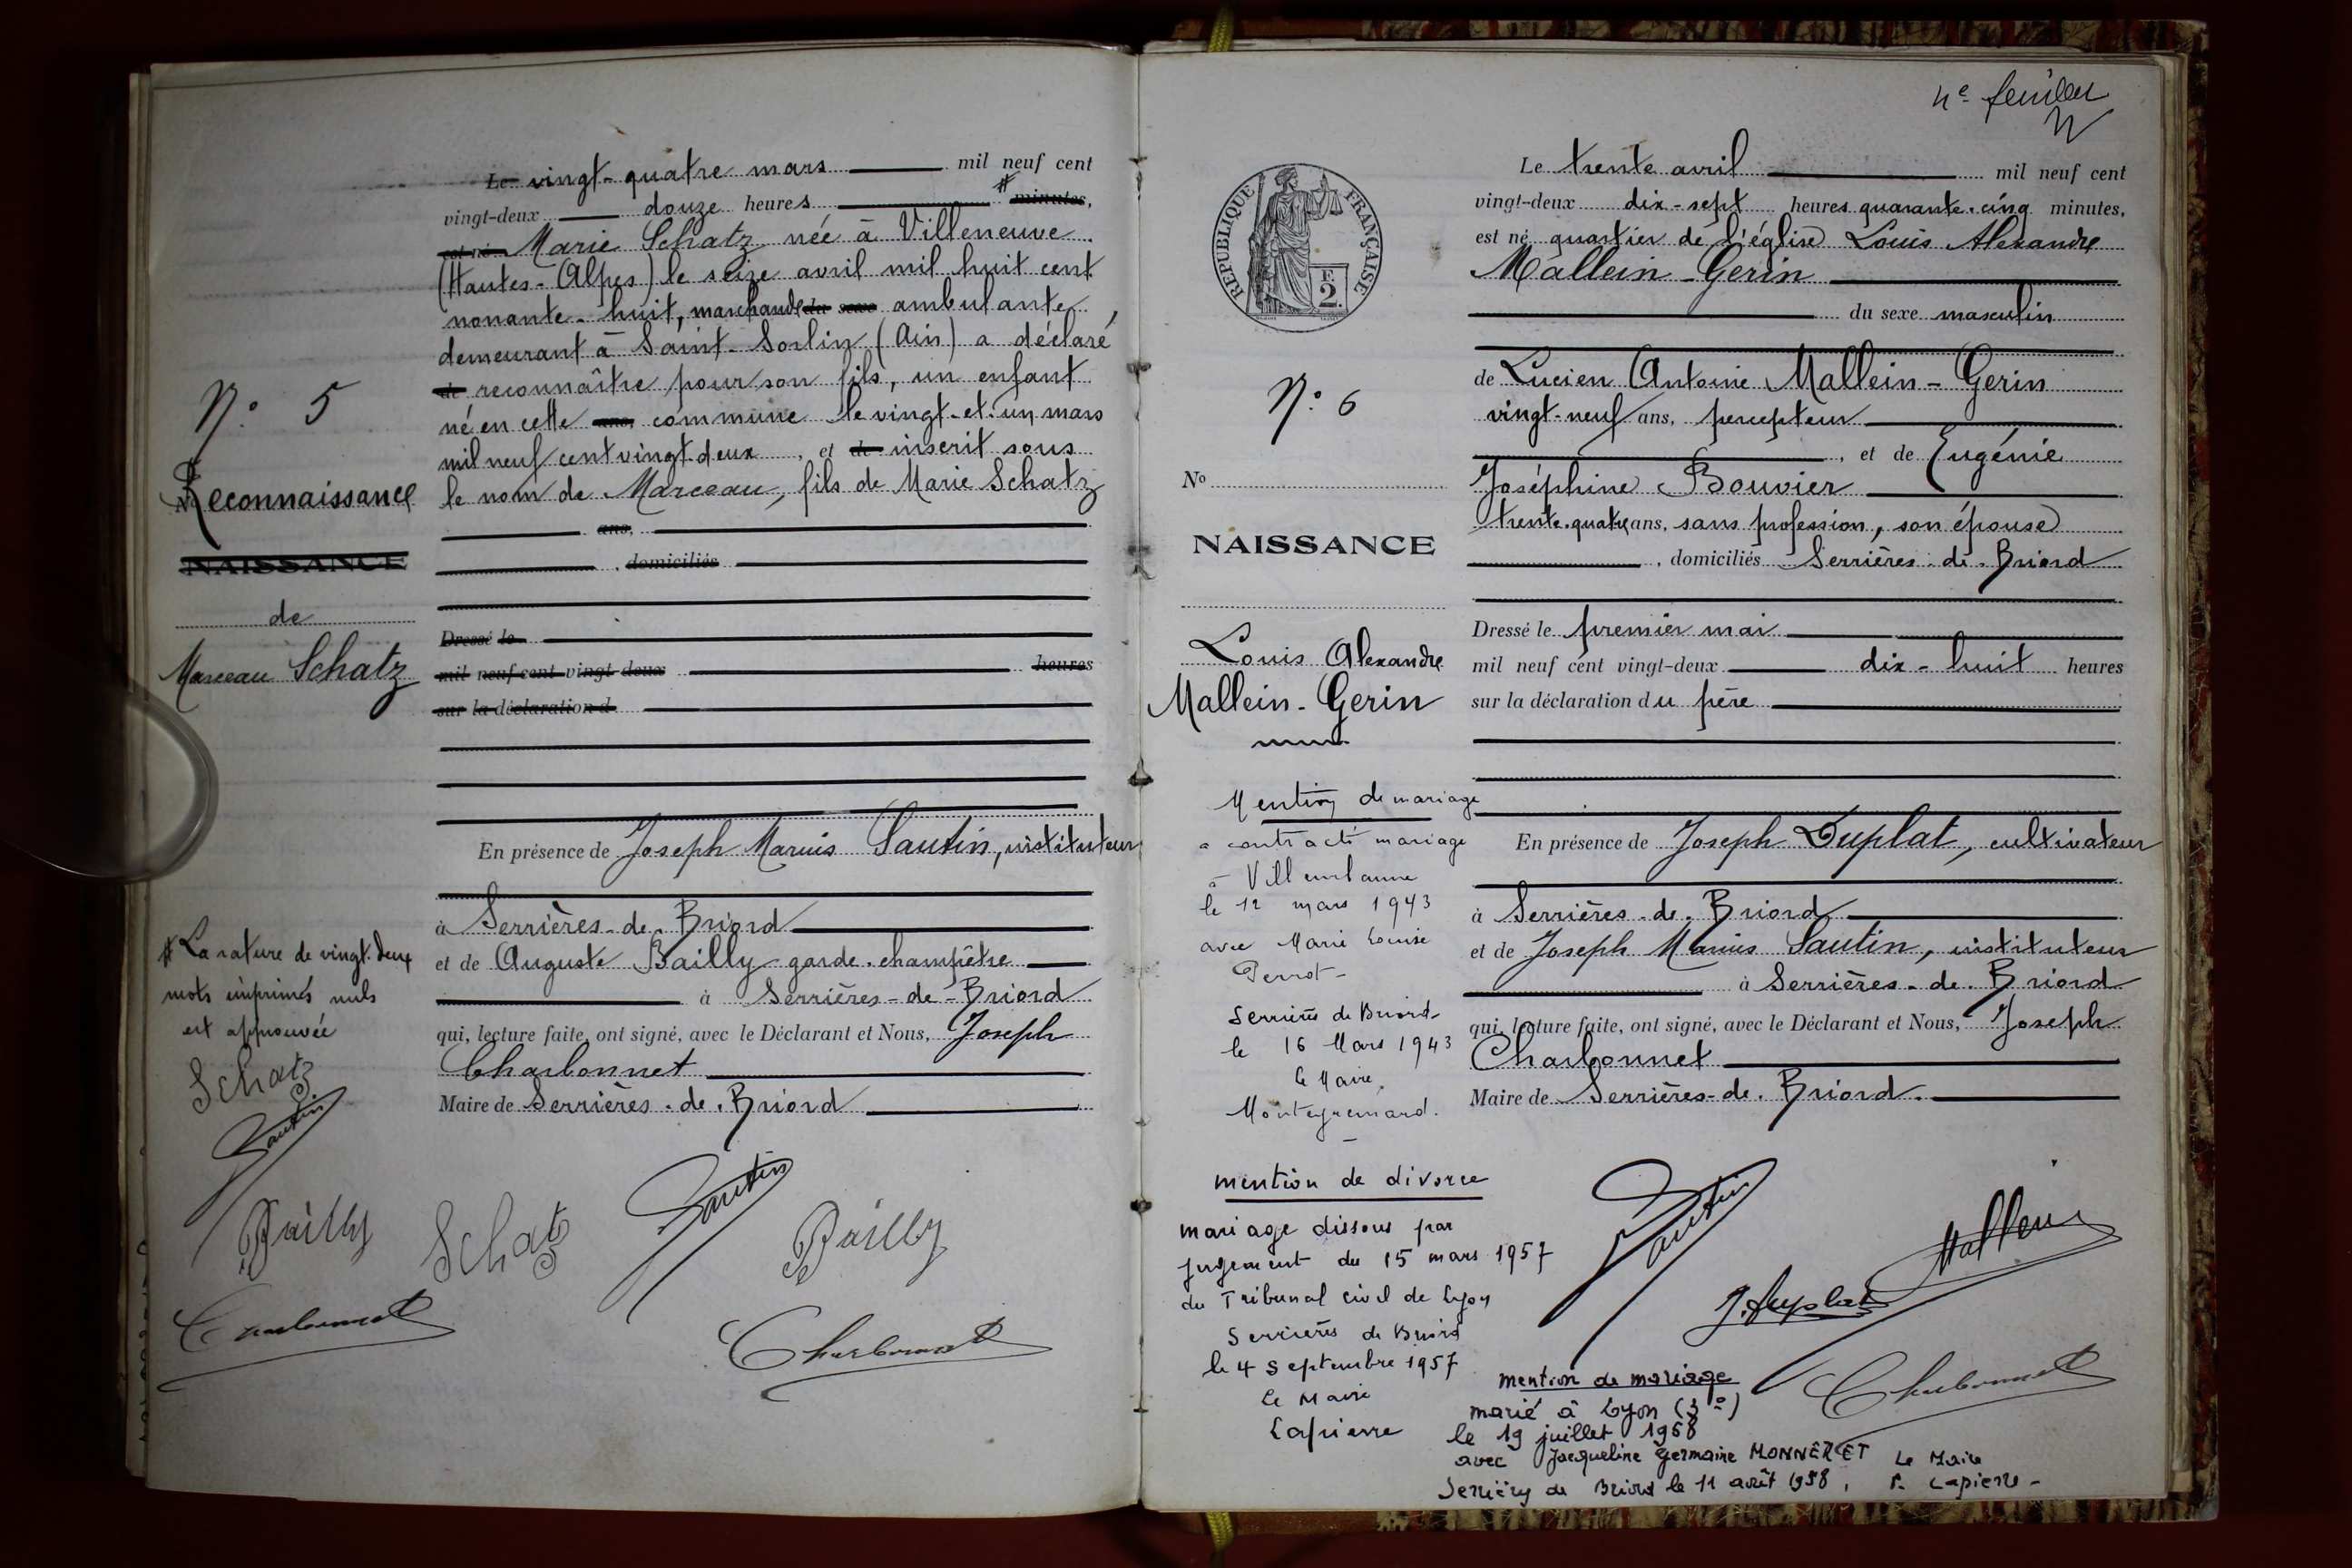 Le vingt-quatre mars mil neuf cent
vingt-deux douze heures # minutes,
est né Marie Schatz née à Villeneuve
(Hautes-Alpes) le seize avril mil huit cent
nonante-huit, marchande du sexe ambulante,
demeurant à Saint-Sorlin (Ain) a déclaré
de reconnaître pour son fils, un enfant
né en cette ans, commune le vingt-et-un mars
mil neuf cent vingt-deux, et de inscrit sous
le nom de Marceau, fils de Marie Schatz
ans,
, domiciliés
Dressé le
mil neuf cent vingt-deux heures
sur la déclaration d
En présence de Joseph Marius Sautin, instituteur
à Serrières-de-Briord
et de Auguste Bailly garde-champêtre
à Serrières-de-Briord
qui, lecture faite, ont signé, avec le Déclarant et Nous, Joseph
Charbonnet
Maire de Serrières-de-Briord
N° 5
Reconnaissance
NAISSANCE
de
Marceau Schatz
# La rature de vingt-deux
mots imprimés nuls
est approuvée
Schatz
Sautin
Bailly
Charbonnet
Schatz
Sautin
Bailly
Charbonnet
4e feuillet
RÉPUBLIQUE FRANÇAISE
F.
2.
N° 6
N°
NAISSANCE
Louis Alexandre
Mallein-Gerin
Le trente avril mil neuf cent
vingt-deux dix-sept heures quarante-cinq minutes,
est né quartier de l'église Louis Alexandre
Mallein-Gerin
du sexe masculin
de Lucien Antoine Mallein-Gerin
vingt-neuf ans, percepteur
, et de Eugénie
Joséphine Bouvier
trente-quatre ans, sans profession, son épouse
, domiciliés Serrières-de-Briord
Dressé le premier mai
mil neuf cent vingt-deux dix-huit heures
sur la déclaration du père
En présence de Joseph Duplat, cultivateur
à Serrières-de-Briord
et de Joseph Marius Sautin, instituteur
à Serrières-de-Briord
qui, lecture faite, ont signé, avec le Déclarant et Nous, Joseph
Charbonnet
Maire de Serrières-de-Briord.
Mention de mariage
a contracté mariage
à Villeurbanne
le 12 mars 1943
avec Marie Louise
Perrot-
Serrières de Briord
le 16 Mars 1943
le Maire,
Montegremard.
mention de divorce
mariage dissous par
jugement du 15 mars 1957
du Tribunal civil de Lyon
Serrières de Briord
le 4 septembre 1957
Le Maire
Lapierre
Sautin
Mallein
J. Duplat
Charbonnet
mention de mariage
marié à Lyon (3°)
le 19 juillet 1958
avec Jacqueline Germaine MONNERET
Serrières de Briord le 11 août 1958,
Le Maire
P. Lapierre-